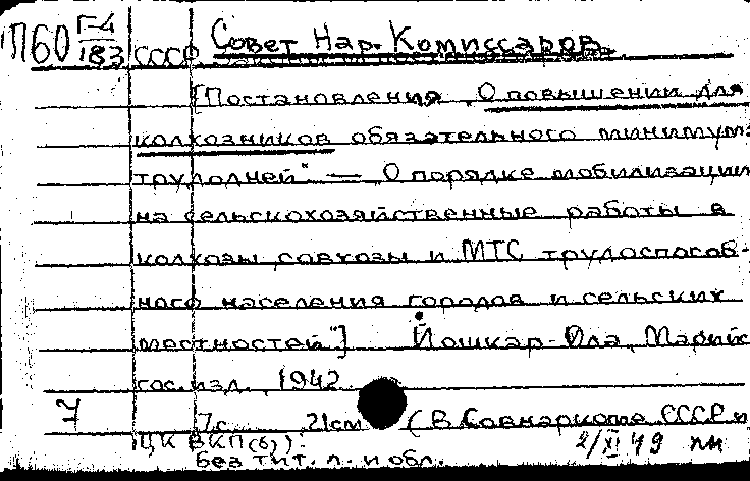 П60 Г-4/183 СССР Совет Нар. Комиссаров.
[Постановления „О повышении для
колхозников обязательного минимума
трудодней" — О порядке мобилизации
на сельскохозяйственные работы в
колхозы, совхозы и МТС трудоспособ-
ного населения городов и сельских
местностей"] Йошкар-Ола, Марийс
гос. изд., 1942.
7 7 с. 21 см. (В Совнаркоме СССР и
ЦК ВКП(б)).
Без тит. л. и обл. 2/XI 49